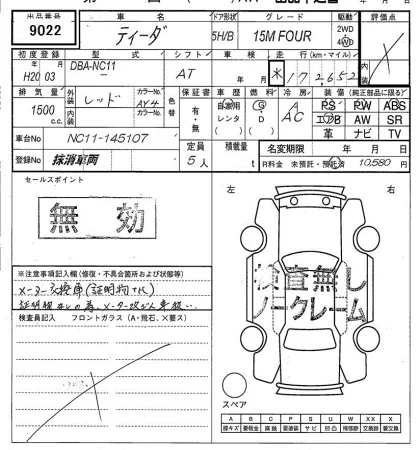 出品番号 車名 ドア形状 グレード 駆動 評価点
9022 ティーダ 5H/B 15M FOUR 2WD 4WD
初度登録 型式 シフト 車検 走行(km・マイル)
H20年 03月 DBA-NC11- AT 年 月 * 17,2652
排気量 外装 レッド カラーNo. AY4 色替 保証書 車歴 燃料 冷房 装備(純正部品に限る)
1500 c.c. 内装 カラーNo. 有・無 自家用 レンタ G D AC A C PS PW ABS
エアB AW SR
革 ナビ TV
車台No NC11-145107 定員 積載量 名変期限 年 月 日
登録No 抹消車両 5人 t R料金 未預託・預託済 10,580円
セールスポイント
無効
左 右
※注意事項記入欄(修復・不具合箇所および状態等)
メーター交換車(証明物ナシ)
証明物なしの為、メーター改ざん車扱い
検査員記入 フロントガラス(A・飛石、X要ス)
検査無し
ノークレーム
スペア
A B C P S U W X XX X
線キズ 要板金 腐蝕 要塗装 サビ 凹凸 補修跡 交換跡 要交換